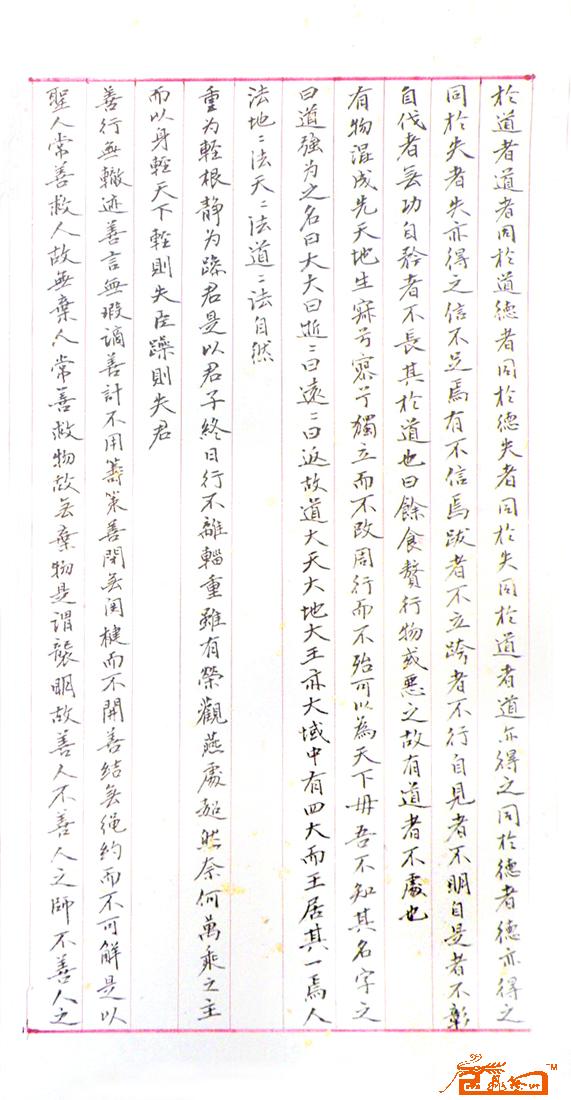 於道者道者同於道德者同於德失者同於失同於道者道亦得之同於德者德亦得之
同於失者失亦得之信不足焉有不信焉跂者不立跨者不行自見者不明自是者不彰
自伐者無功自矜者不長其於道也曰餘食贅行物或惡之故有道者不處也
有物混成先天地生寂兮寥兮獨立而不改周行而不殆可以為天下母吾不知其名字之
曰道強為之名曰大大曰逝〻曰遠〻曰返故道大天大地大王亦大域中有四大而王居其一焉人
法地〻法天〻法道〻法自然
重為輕根静為躁君是以君子終日行不離輜重雖有榮觀燕處超然奈何萬乘之主
而以身輕天下輕則失臣躁則失君
善行無轍迹善言無瑕謫善計不用籌策善閉無関楗而不開善結無繩約而不可解是以
聖人常善救人故無棄人常善救物故無棄物是謂襲明故善人不善人之師不善人之
TM